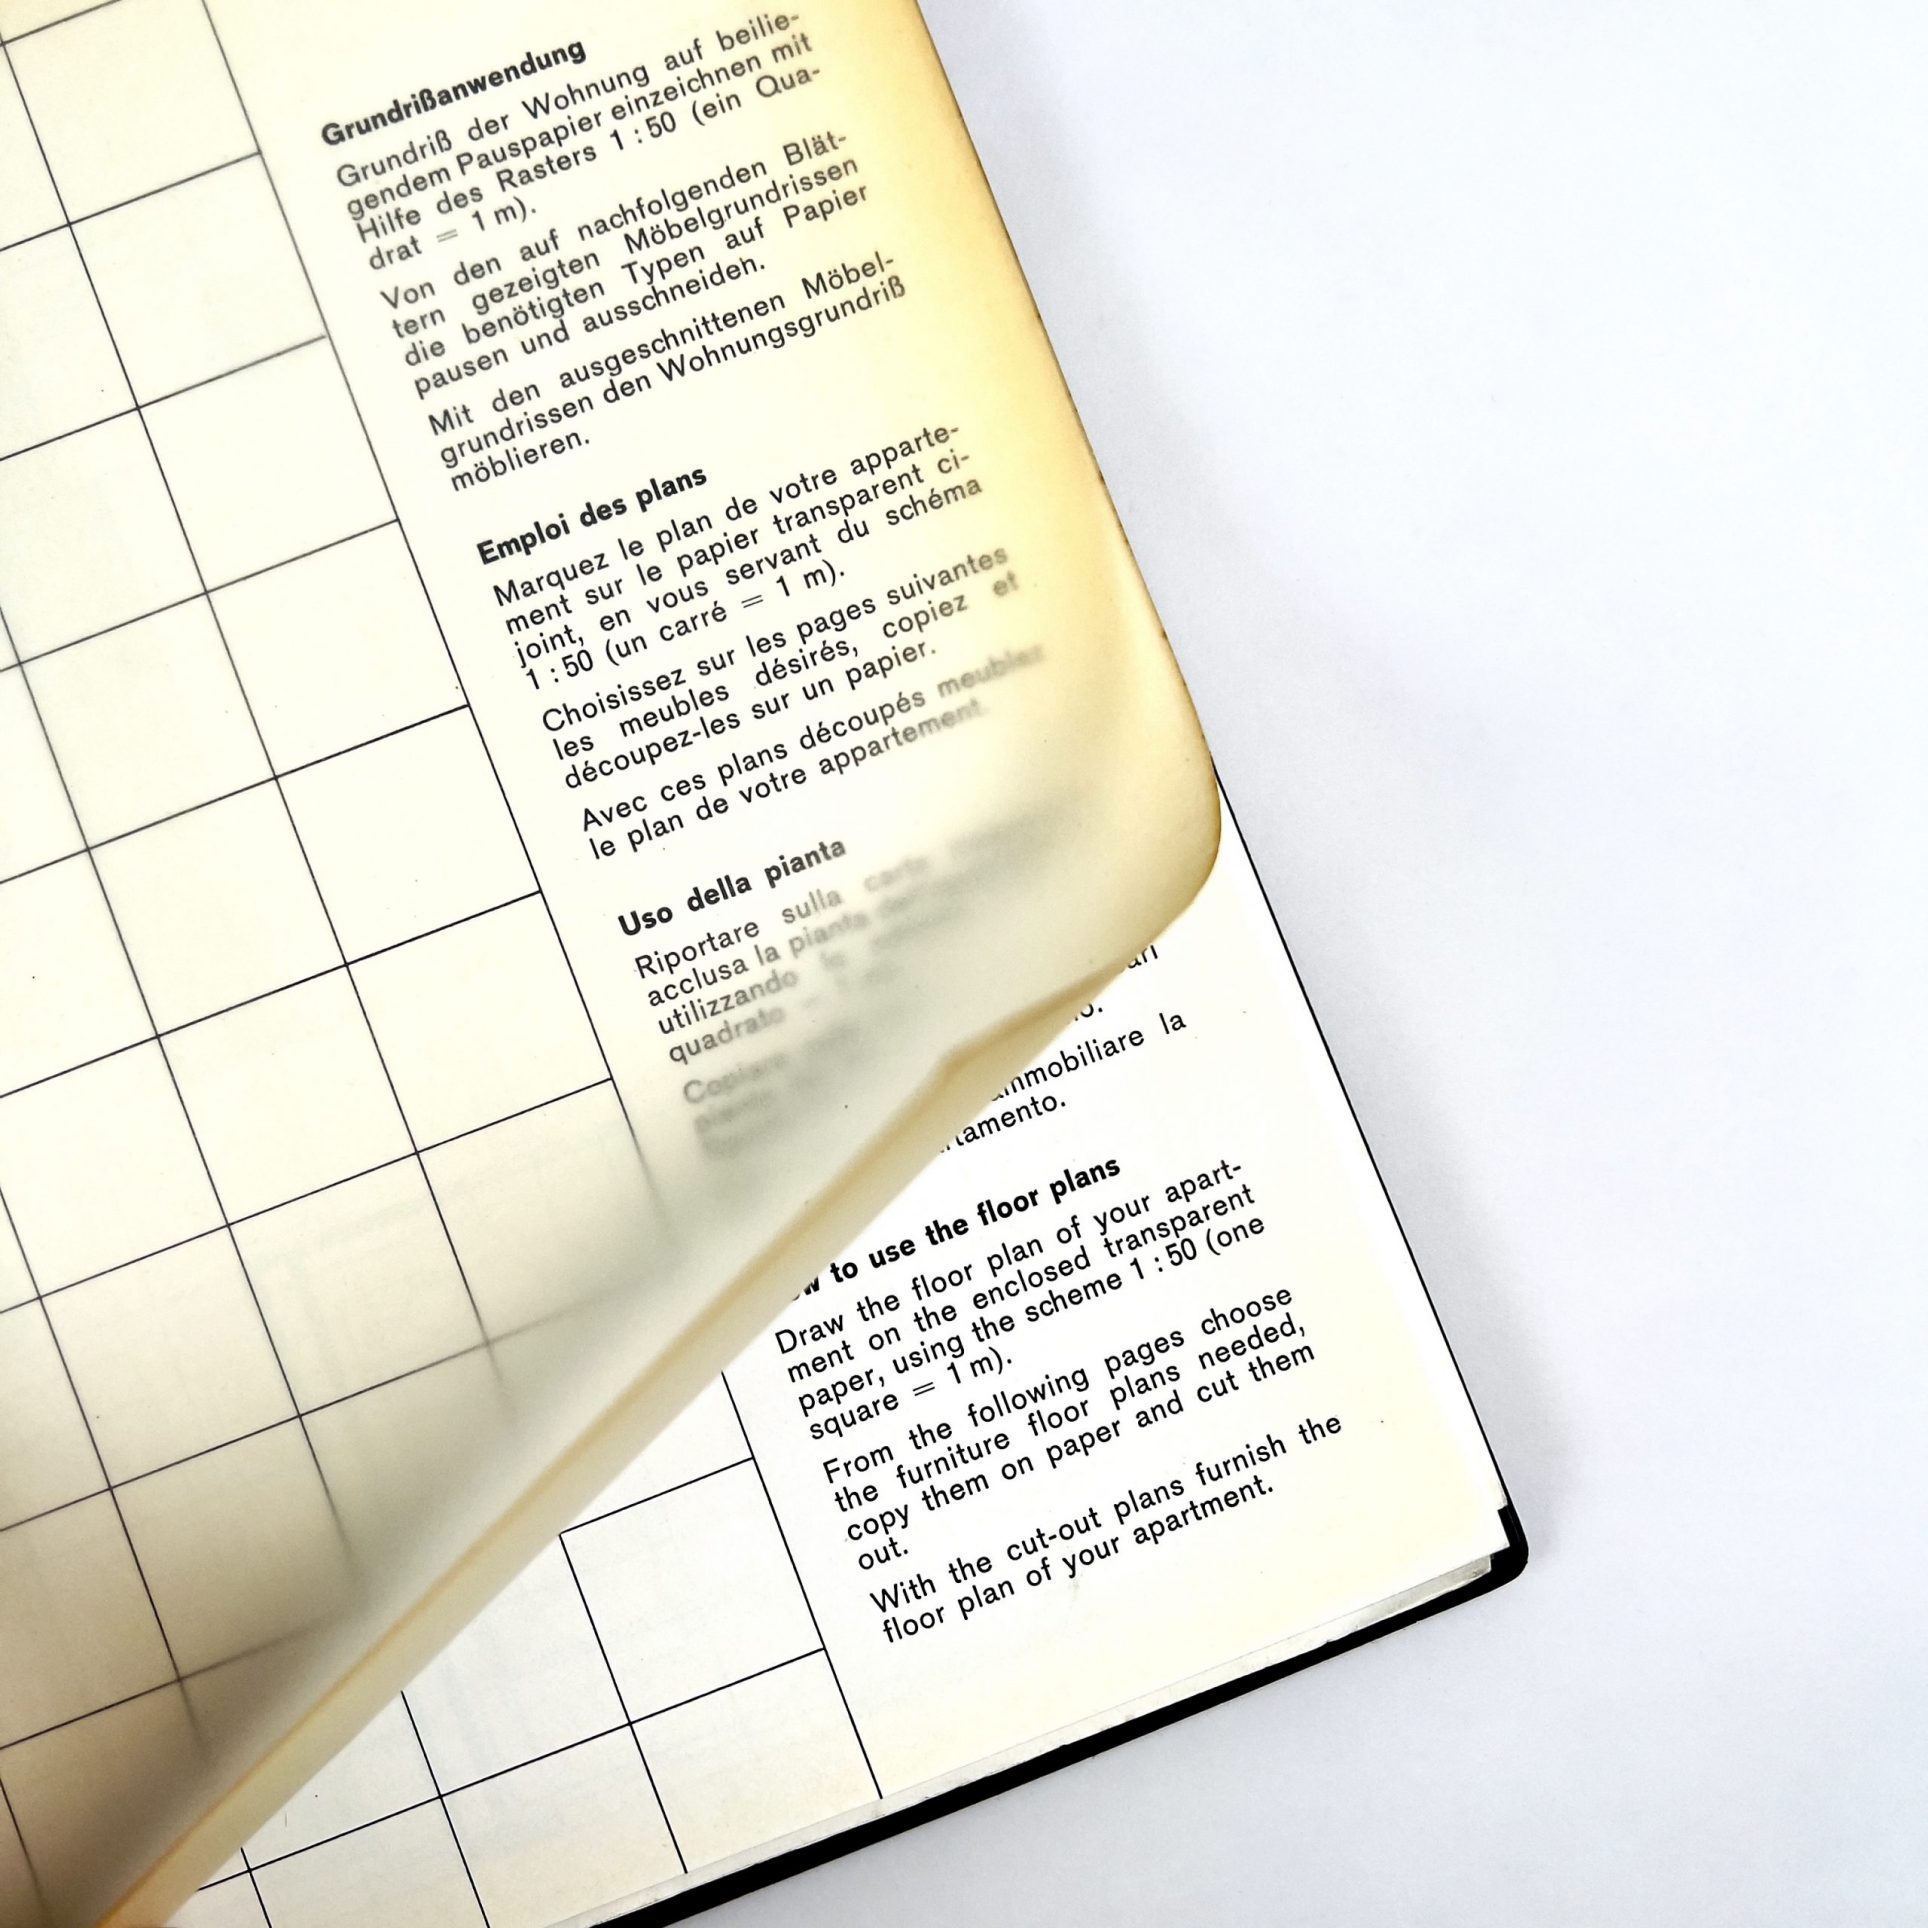 Grundrißanwendung
Grundriß der Wohnung auf beilie-
gendem Pauspapier einzeichnen mit
Hilfe des Rasters 1 : 50 (ein Qua-
drat = 1 m).
Von den auf nachfolgenden Blät-
tern gezeigten Möbelgrundrissen
die benötigten Typen auf Papier
pausen und ausschneiden.
Mit den ausgeschnittenen Möbel-
grundrissen den Wohnungsgrundriß
möblieren.
Emploi des plans
Marquez le plan de votre apparte-
ment sur le papier transparent ci-
joint, en vous servant du schéma
1 : 50 (un carré = 1 m).
Choisissez sur les pages suivantes
les meubles désirés, copiez et
découpez-les sur un papier.
Avec ces plans découpés meublez
le plan de votre appartement.
Uso della pianta
Riportare sulla carta
acclusa la pianta
utilizzando
quadrato
Copiare
immobiliare la
to use the floor plans
Draw the floor plan of your apart-
ment on the enclosed transparent
paper, using the scheme 1 : 50 (one
square = 1 m).
From the following pages choose
the furniture floor plans needed,
copy them on paper and cut them
out.
With the cut-out plans furnish the
floor plan of your apartment.